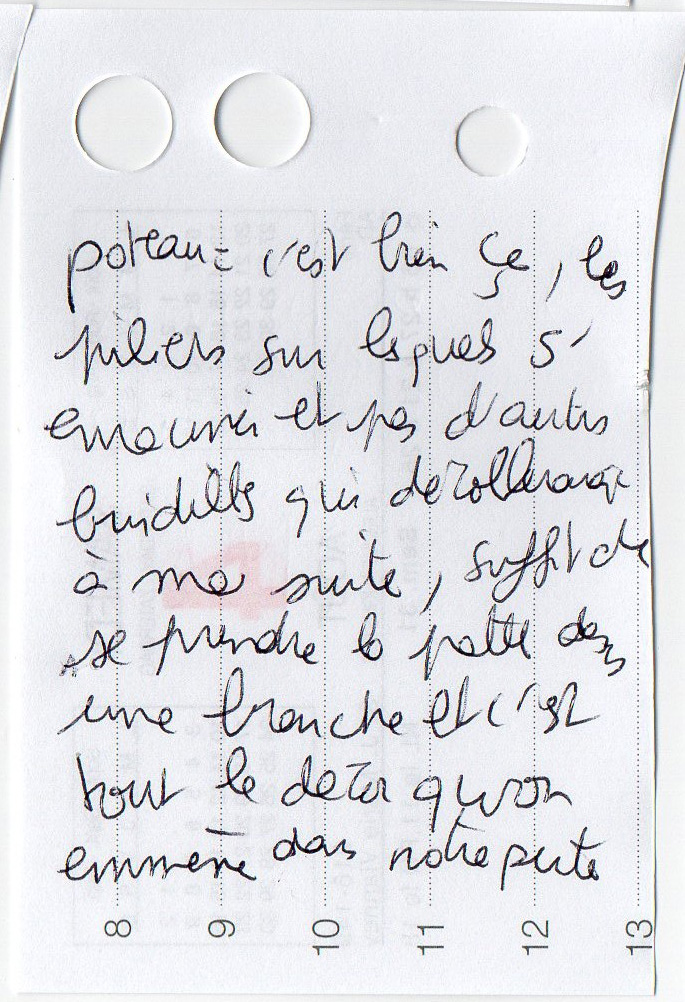 poteau = c'est bien ça, les
piliers sur lesquels s'
et pas d'autres
brindilles qui
à ma suite, suffit de
se prendre la patte dans
une branche et c'est
tout le décor qu'on
emmène dans notre perte
8 9 10 11 12 13